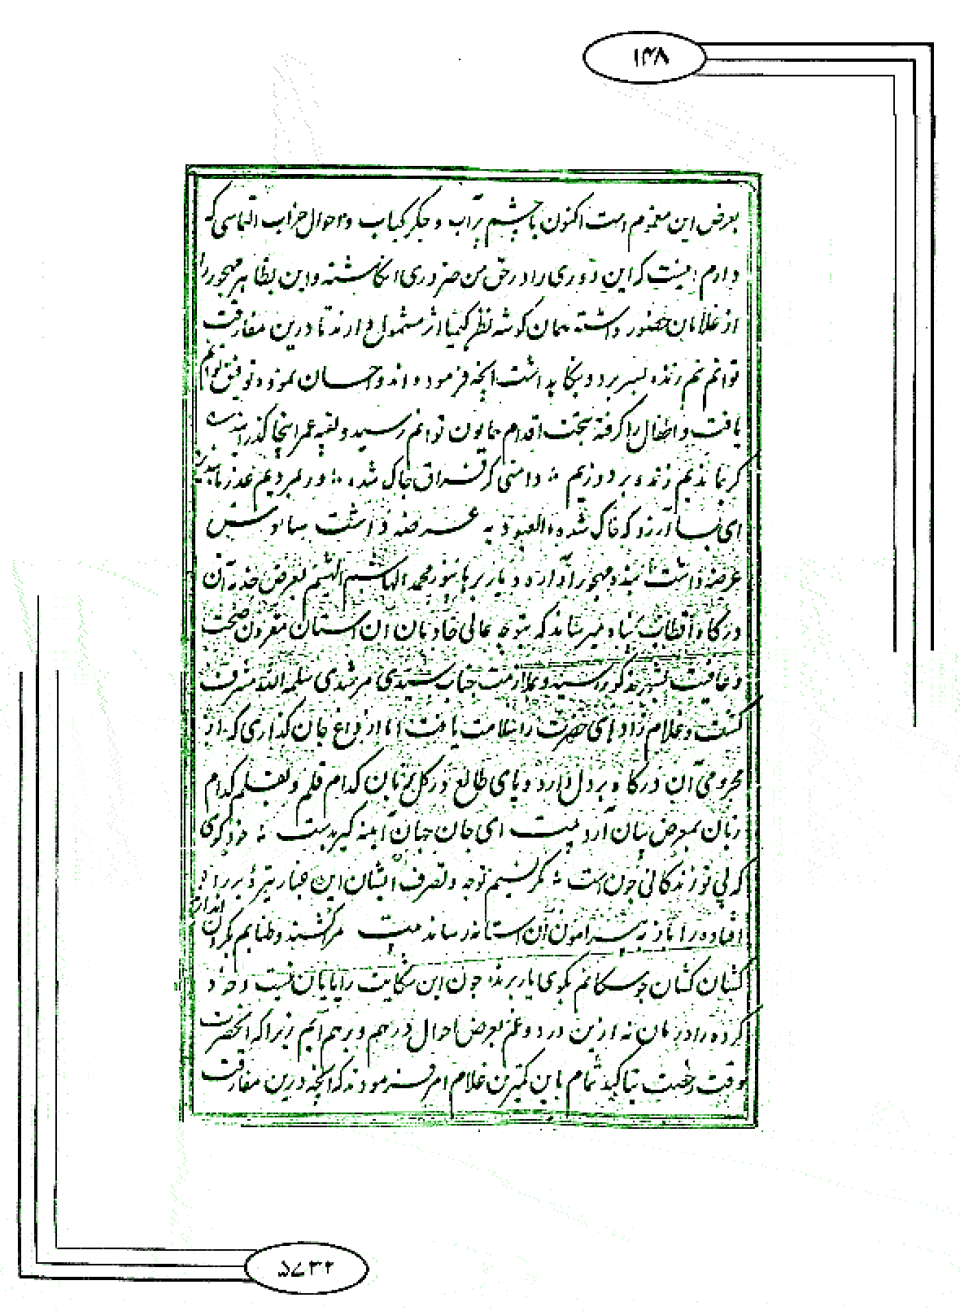 ۱۴۸
بعرض این معزم است اکنون با چشم پرآب و جگر کباب و احوال خراب التماسی که
دارم اینست که این دوری را در حق من ضروری انگاشته و این بظاهر مهجور را
از غلامان حضور داشته همان گوشه نظر کیمیا اثر مشمول دارند تا درین مفارقت
توانم نیم زنده بسر برد و بنگاهداشت آنچه فرموده اند و احسان نموده توفیق توانم
یافت و اطفال را گرفته بتخت اقدام همایون توانم رسید و بقیه عمر اینجا گذرانید
گر بماندیم زنده بر دوزیم دامنی کز فراق چاک شده ور نمردیم عذر ما بپذیر
ای بسا آرزو که خاک شده العبودیه عرضه داشت
عرضه داشت بنده مهجور آواره دیار برهانپور محمد الهاشم الهشیم بعرض خدمه آن
درگاه اقطاب پناه میرساند که بتوجه عالی خادمان آن آستان مقرون صحت
و عافیت ببرهانپور رسید و بملازمت جناب سیدی مرشدی سلمه الله مشرف
گشت و غلام زادهای حضرت را بسلامت یافت اما از داغ جان گدازی که از
محرومی آن درگاه بر دل دارد و پای طالع در گل بزبان کدام قلم و بقلم کدام
زبان بمعرض بیان آرد بیت ای جان جهان آینه گیر بدست خود گوی
که بی تو زندگانی چون است مگر نسیم توجه و تصرف ایشان این غبار تیره بر راه
افتاده را باز به پیرامون آن آستانه رساند بیت مرا کشند و طنابم بگردن اندازند
کشان کشان چو سگانم بکوی یار برند چون این شکایت را پایان نیست و خود
کرده را درمان نه ازین درد و غم بعرض احوال درهم و برهم آیم زیرا که آنحضرت
وقت رخصت بتاکید تمام باین کمترین غلام امر فرمودند که آنچه درین مفارقت
۵۷۳۲